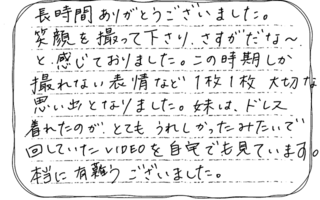 長時間ありがとうございました。
笑顔を撮って下さり、さすがだな～
と、感じておりました。この時期しか
撮れない表情など1枚1枚 大切な
思い出となりました。妹は、ドレス
着れたのが、とてもうれしかったみたいで
回していたVIDEOを自宅でも見ています。
本当に有難うございました。